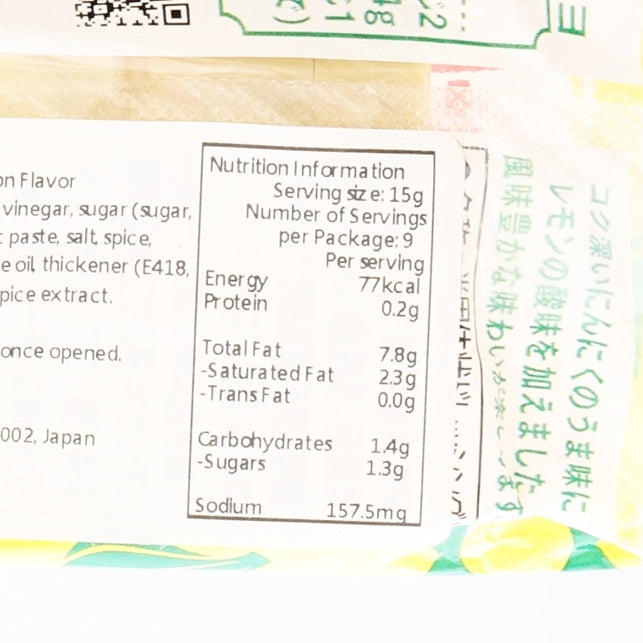 on Flavor
vinegar, sugar (sugar,
paste, salt, spice,
e oil, thickener (E418,
pice extract.
once opened.
002, Japan
Nutrition Information
Serving size: 15g
Number of Servings
per Package: 9
Per serving
Energy 77kcal
Protein 0.2g
Total Fat 7.8g
-Saturated Fat 2.3g
-Trans Fat 0.0g
Carbohydrates 1.4g
-Sugars 1.3g
Sodium 157.5mg
コク深いにんにくのうま味に
レモンの酸味を加えました
風味豊かな味わい